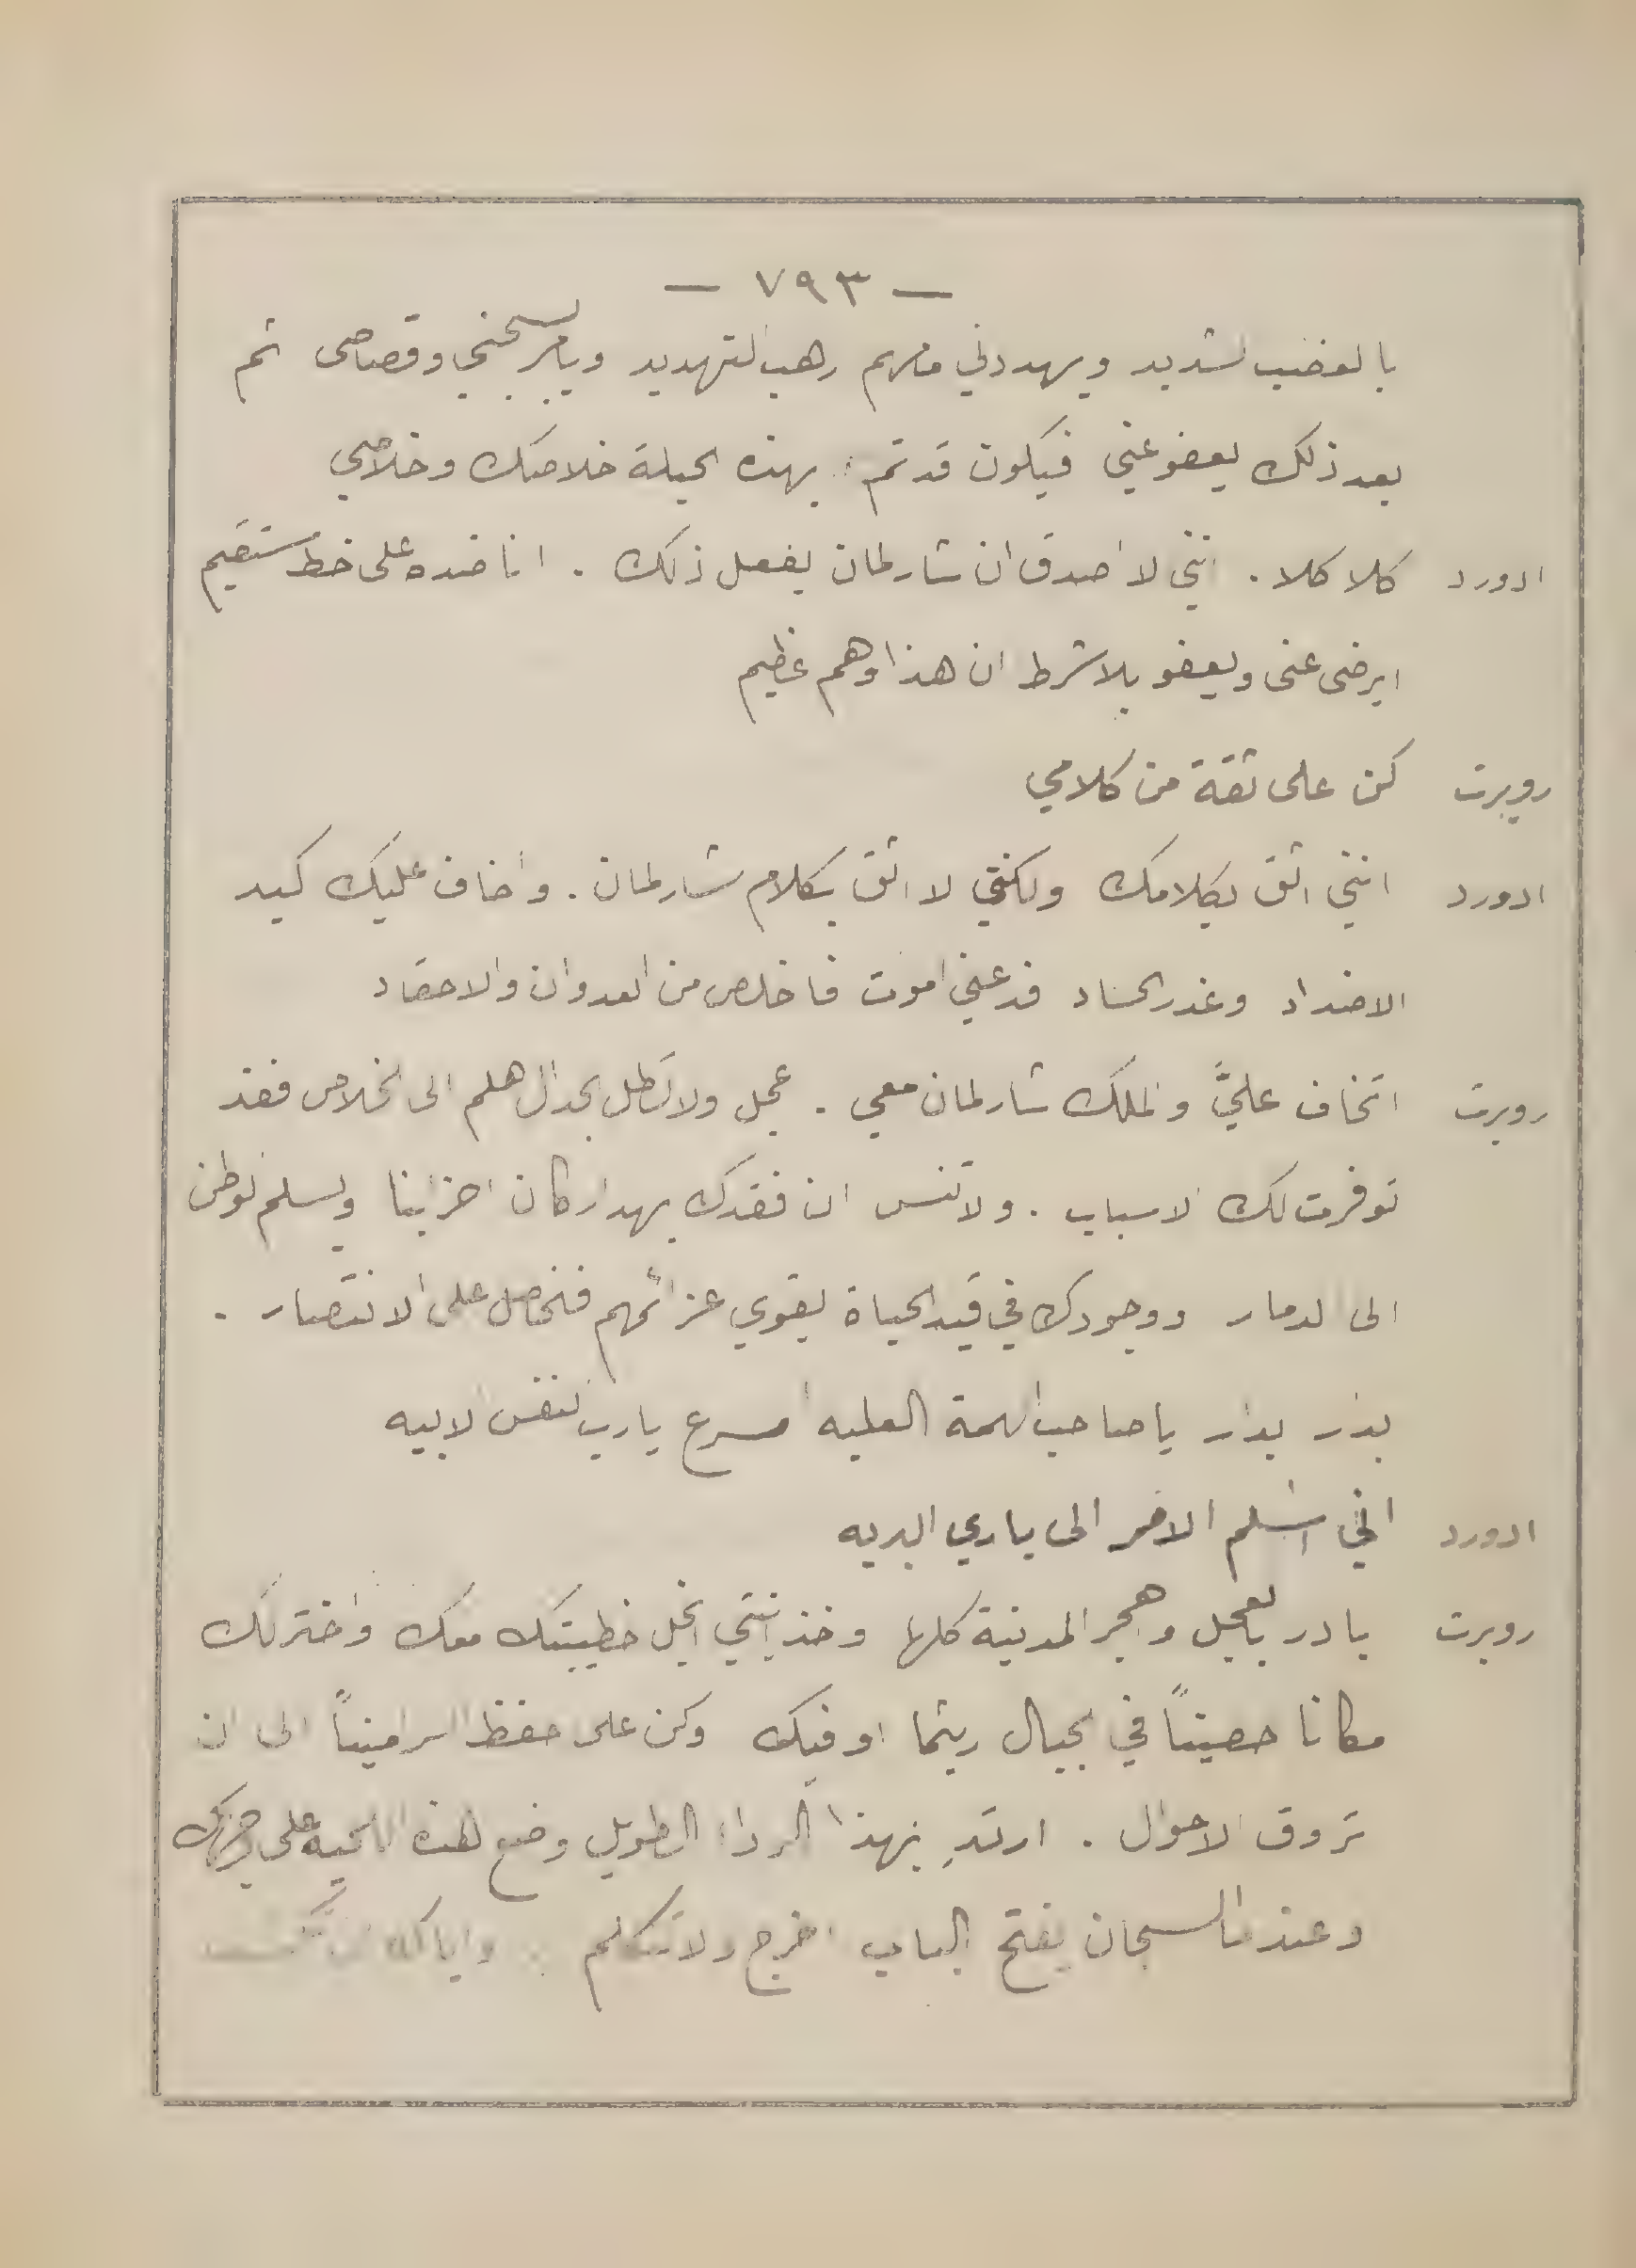 — ٧٩٣ —
بالغضب الشديد ويهددني رهب التهديد ويأمر بسجني وقصاصي ثم
بعد ذلك يعفو عني فيكون قد تم بهذه الحيلة خلاصك وخلاصي
ادورد كلا كلا . انني لا اصدق ان شارلمان يفعل ذلك . انا ضده على خط مستقيم
ايرضى عني ويعفو بلا شرط ان هذا وهم عظيم
روبرت كن على ثقة من كلامي
ادورد انني اثق بكلامك ولكنني لا اثق بكلام شارلمان . واخاف عليك كيد
الاضداد وغدر الحساد فدعني اموت فاخلص من العدوان والاحقاد
روبرت اتخاف عليَّ والملك شارلمان معي . عجل ولا تطل الجدال هلم الى الخلاص فقد
توفرت لك الاسباب . ولا تنس ان فقدك يهد اركان احزابنا ويسلم الوطن
الى الدمار ووجودك في قيد الحياة يقوي عزائمهم فنحصل على الانتصار .
بدار بدار يا صاحب الهمة العليه اسرع يا رب النفس الابيه
ادورد اني اسلم الامر الى باري البريه
روبرت بادر بالعجل واهجر المدينة كلها وخذ ابنتي اجل خطيبتك معك واختر لك
مكانا حصيناً في الجبال ريثما اوافيك وكن على حفظ السر اميناً الى ان
تروق الاحوال . ارتدِ بهذا الرداء الطويل وضع هذه اللحية على وجهك
وعندما السجان يفتح الباب اخرج ولا تتكلم واياك ان